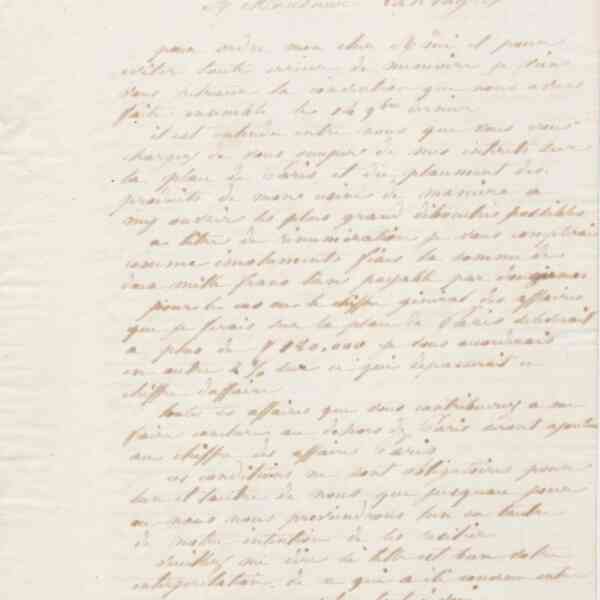 A Monsieur
pour ordre mon cher et pour
éviter toute erreur de mémoire je viens
vous retracer la convention que nous avons
faite ensemble le 14 9bre
il est entendu entre nous que vous vous
chargez de vous occuper de mes intérêts sur
la place de Paris et du placement des
produits de mon usine de manière a
my ouvrir les plus grand débouchés possibles
a titre de rénumération je vous compterai
comme émoluments fixes la somme de
mille francs lans payable par
pour le cas ou le chiffre général des affaires
que je ferais sur la place de Paris
a plus de f 120,000 je vous
en outre 2 % sur ce qui dépasserait ce
chiffre daffaire
toute les affaires que vous contribuerez a me
faire conclure au dehors de Paris seront ajoutées
au chiffre des affaires Paris
ces conditions ne sont obligatoires pour
lun et lautre de nous que jusquau jour
ou nous nous préviendrons lun ou lautre
de notre intention de les résilier
veuillez me dire si telle est bien votre
interprétation de ce qui a été convenu entre